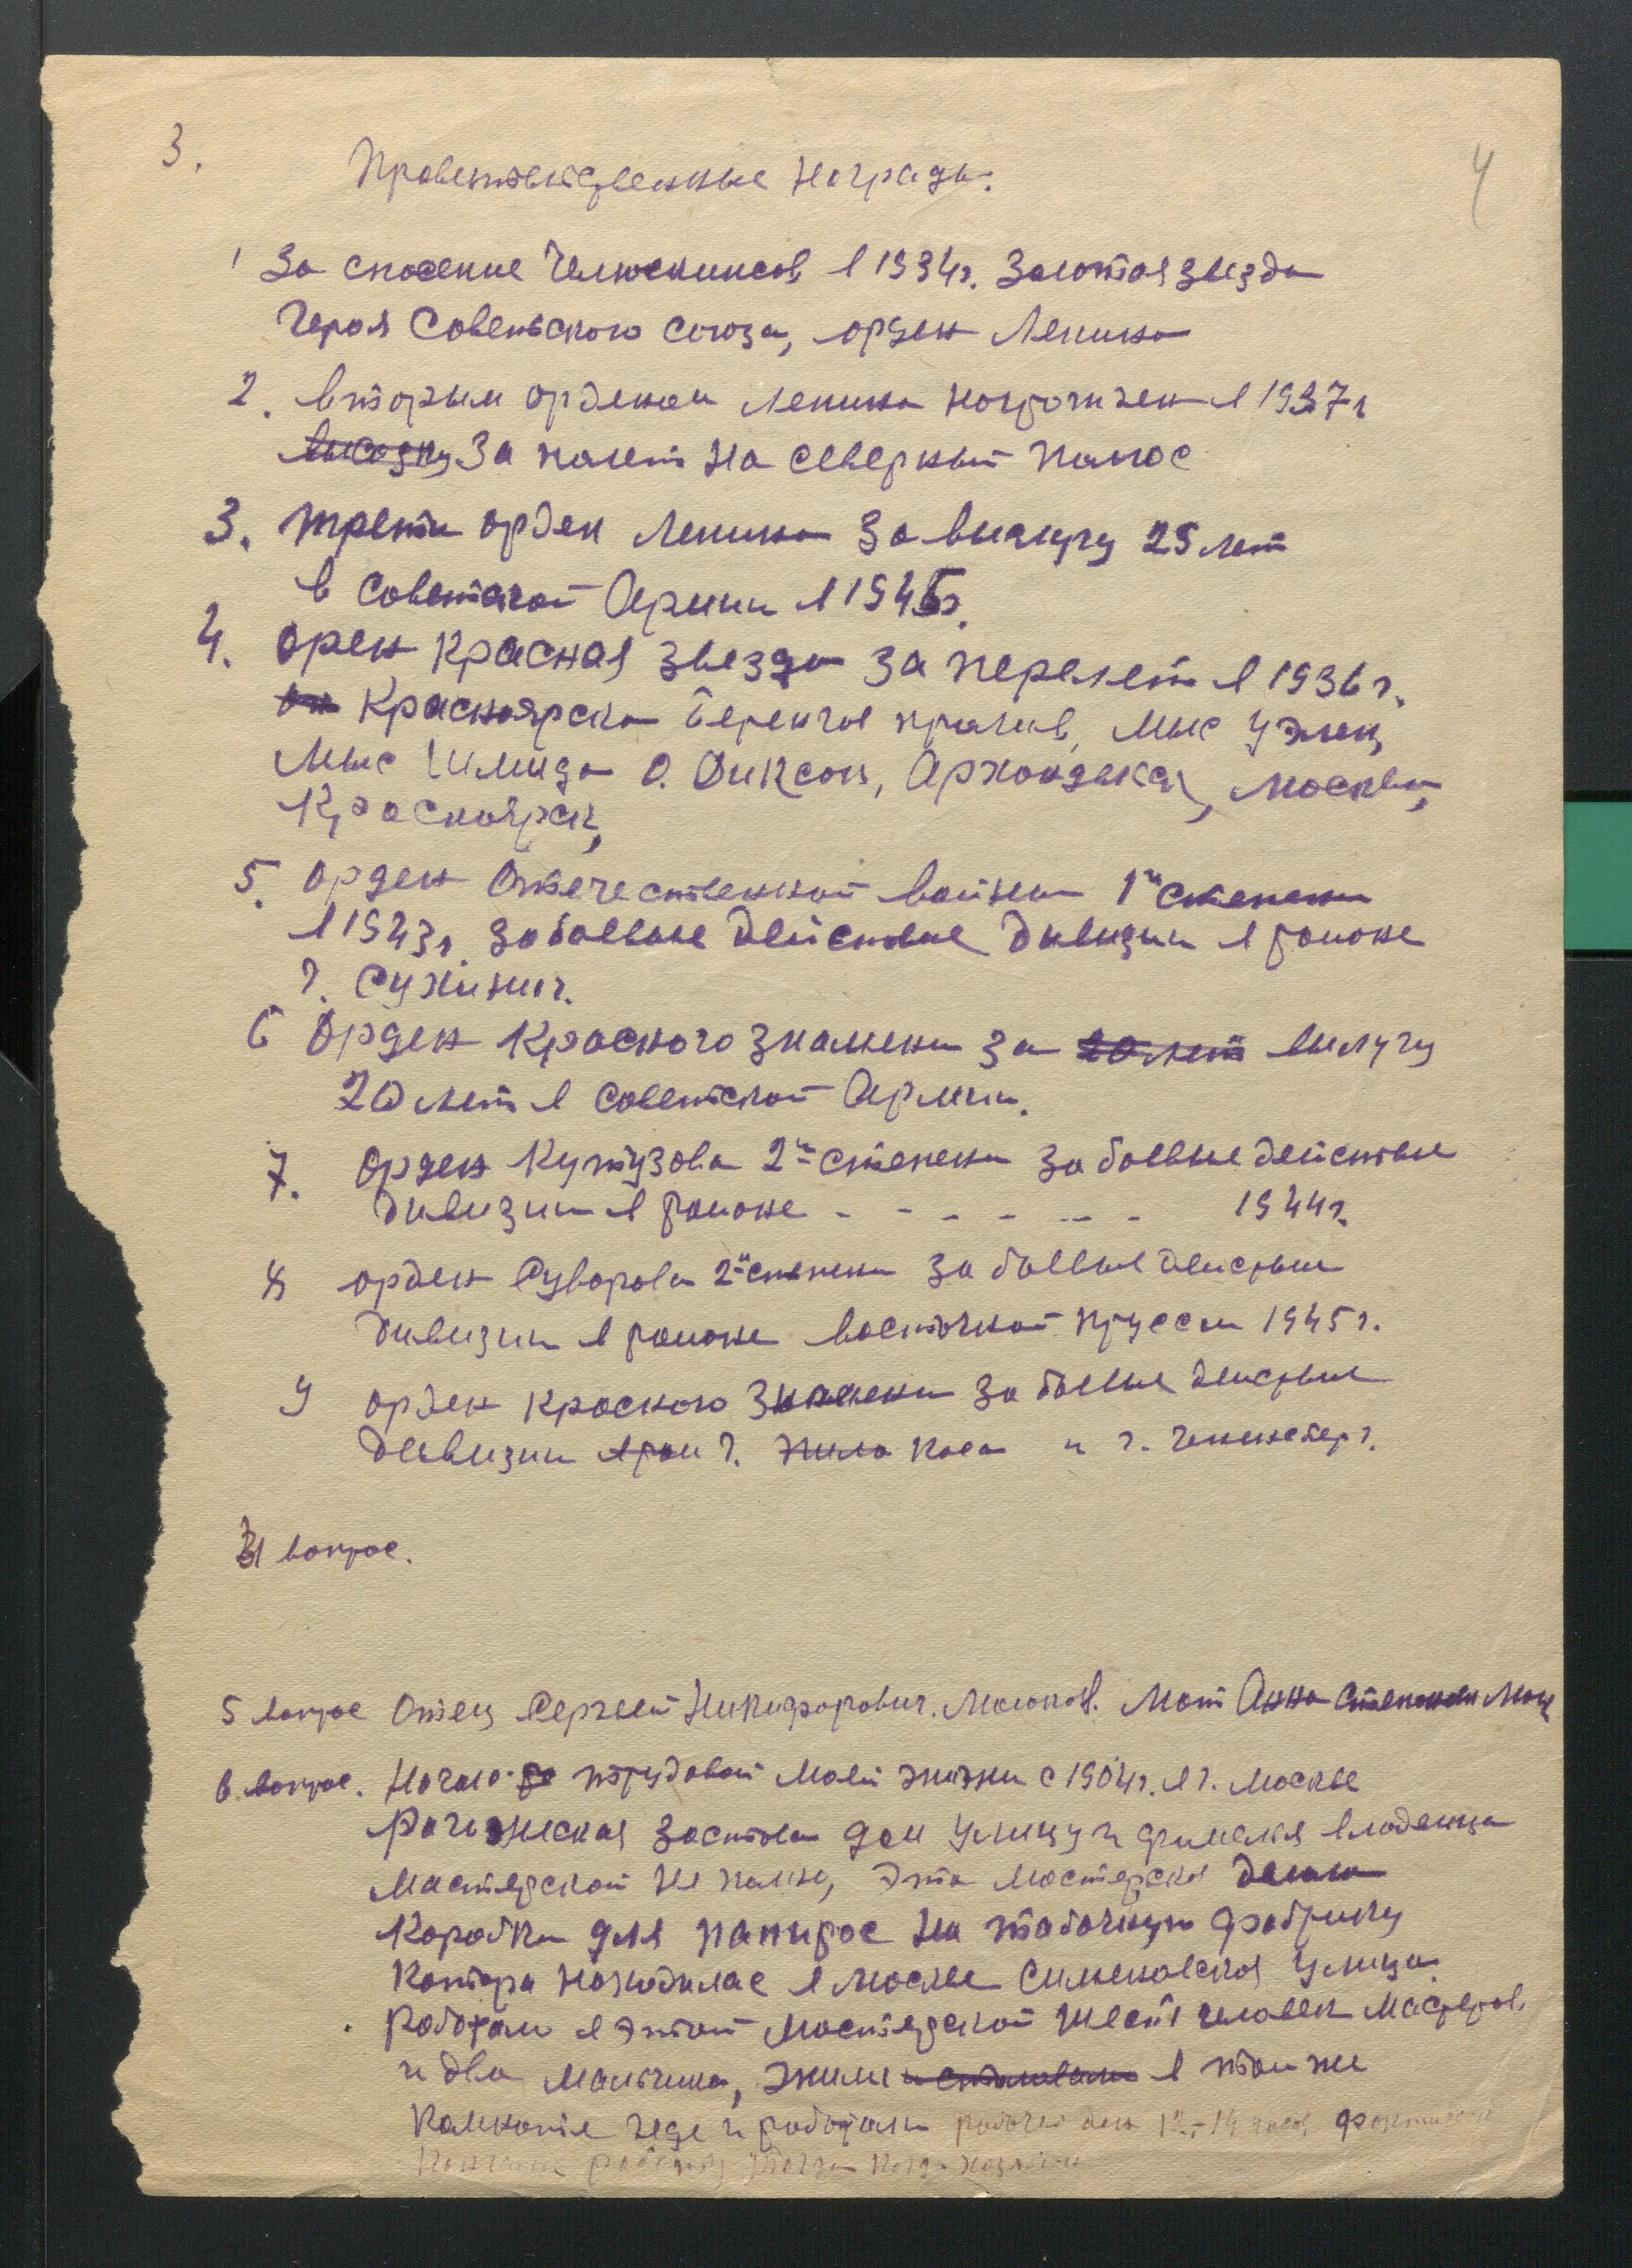 3.
4
Правительственные награды.
1 За спасение Челюскинсов в 1934г. Золотая звезда
Героя Советьского союза, орден Ленина
2. вторым орденом Ленина награжден в 1937г
высадку За налет на северный полюс
3. трети орден Ленина за выслугу 25 лет
в Советской Армии в 1945г.
4. орен Красная звезда за перелет в 1936г.
Красноярска Беренгов пролив, мыс Уэлен,
мыс Шмида О. Диксон, Архандельск, Москва,
Красноярск,
5. Орден Отечественной войны 1й степени
в 1943г. за боевые действие дивизии в районе
г. Сухинич.
6 Орден Красного знамени за 20 лет выслугу
20 лет в советской Армии.
7. Орден Кутузова 2й степени за боевые действие
дивизии в районе - - - - - - 1944г.
8 орден Суворова 2й степени за боевые действие
дивизии в районе восточной пруссии 1945г.
9 орден красного Знамени за боевые действие
дивизии г. коса и г.
вопрос.
5 вопрос Отец Сергей Никифорович. Молоков. Мат Анна Степановна Мол
6 вопрос. Начало трудовой моей жизни с 1904г. в г. Москве
Рагожеская застава дом фамилия владельца
мастерской не помню, эта мастерская делала
коробки для папирос на табачную фабрику
контора находилас в Москве Сименовская улица.
Работали в этой мастерской шест человек мастеров
и два мальчика, жили и столовали в той же
комнате где и работали рабочей ден 12-14 часов,